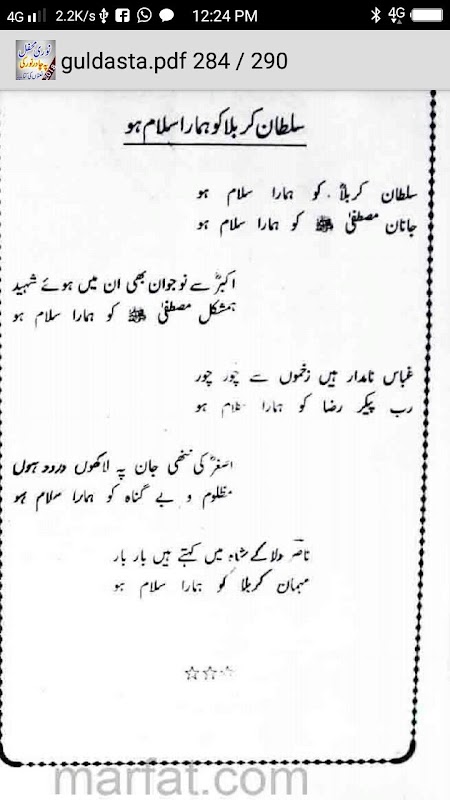 4G 2.2K/s 12:24 PM 4G
guldasta.pdf 284 / 290
سلطان کربلا کو ہمارا سلام ہو
سلطان کربلاؓ کو ہمارا سلام ہو
جانان مصطفیٰ ﷺ کو ہمارا سلام ہو
اکبرؓ سے نوجوان بھی ان میں ہوئے شہید
ہمشکل مصطفیٰ ﷺ کو ہمارا سلام ہو
عباس نامدار ہیں زخموں سے چور چور
پیکر رضا کو ہمارا سلام ہو
اصغرؓ کی ننھی جان پہ لاکھوں درود ہوں
مظلوم و بے گناہ کو ہمارا سلام ہو
ناصر ولائے شاہ میں کہتے ہیں بار بار
مہمان کربلا کو ہمارا سلام ہو
marfat.com